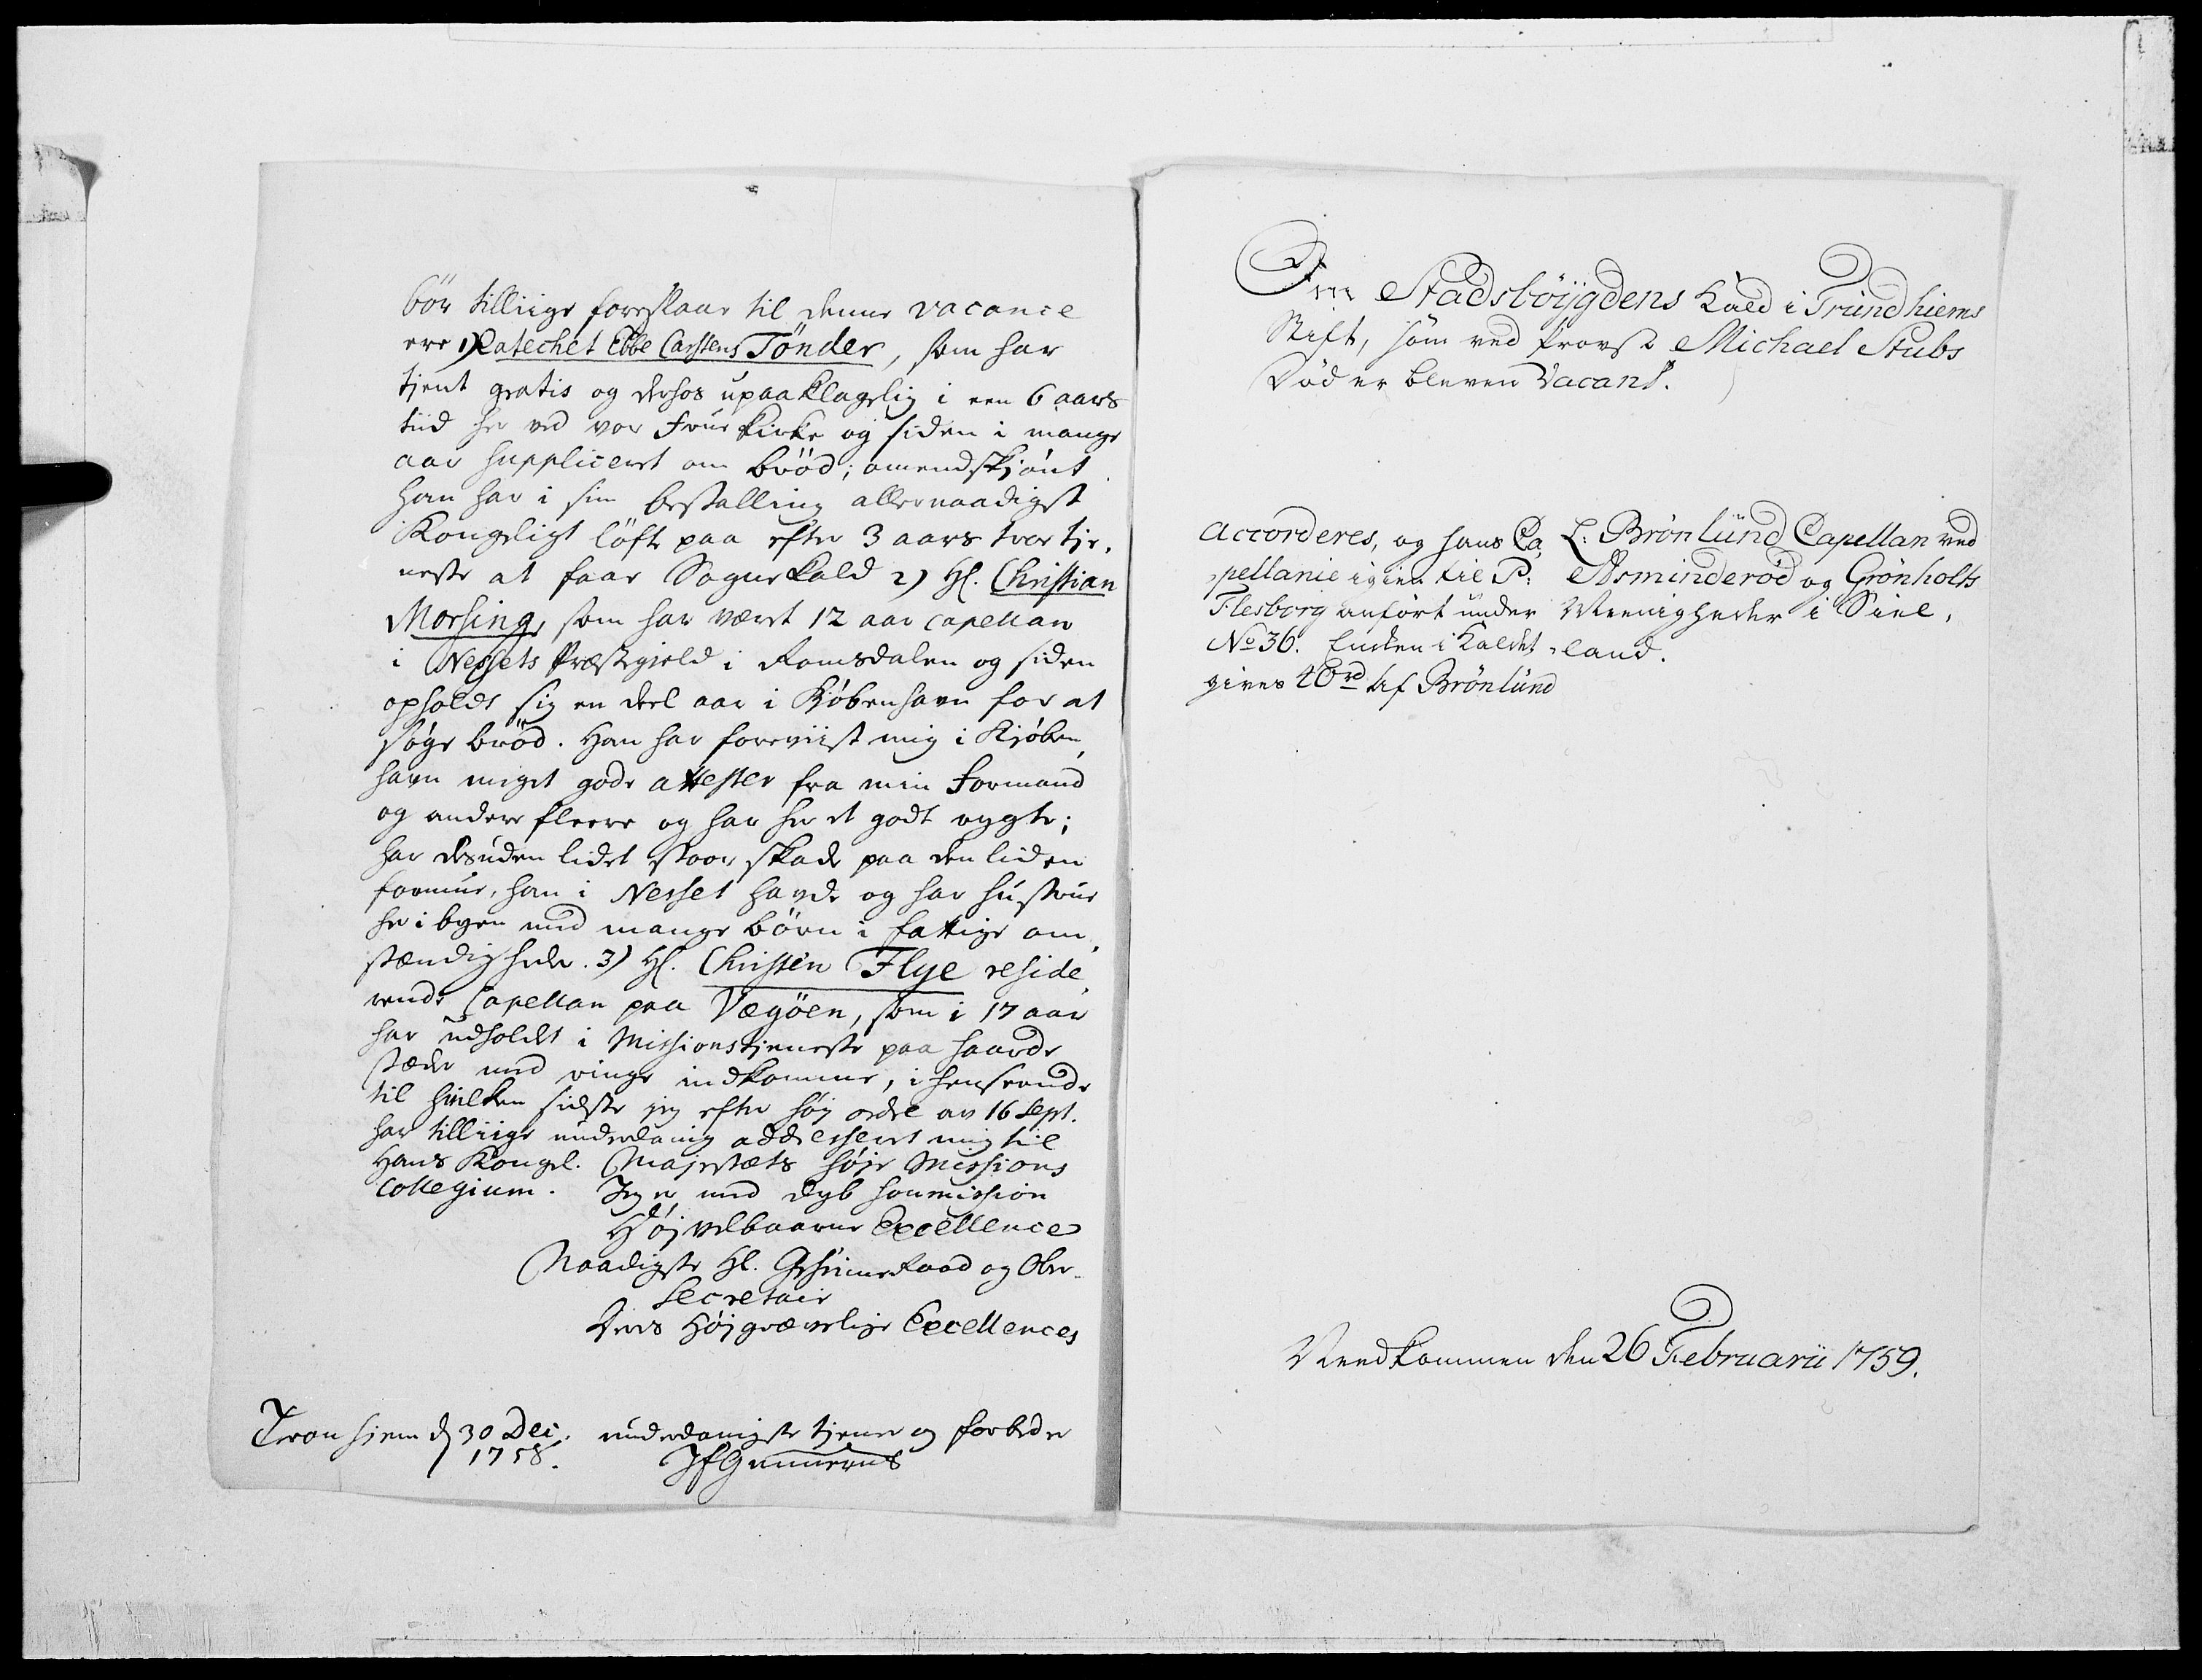 bör tilliige foreslaae til denne vacance
ere 1) Catechet Ebbe Carstens Tönder, som har
tjent gratis og derhos upaaklagelig i een 6 aars
tiid her ved vor Frue Kirke og siden i mange
aar suppliceret om bröd; omendskjönt
han har i sin bestalling allernaadigst
Kongeligt löfte paa efter 3 aars troe tje,
neste at faae Sognekald 2) Hr. Christian
Morsing, som har været 12 aar capellan
i Nessets Præstegield i Romsdalen og siden
opholdt sig en deel aar i Kjöbenhavn for at
söge bröd. Han har foreviist mig i Kjöben,
havn miget gode attester fra min Formand
og andere fleere og har her et godt rygte;
har desuden lidet stoor skade paa den liden
formue, han i Nesset havde og har hustrue
her i byen med mange börn i fattige om,
stændigheder. 3) Hr. Christen Flye reside,
rende Capellan paa Vægöen, som i 17 aar
har udholdt i Missionstjeneste paa haarde
stæder med ringe indkomme, i henseende
til hvilken sidste jeg efter höj ordre av 16 Sept.
har tilliige underdanig addresseret mig til
Hans Kongel. Majestæts höje Missions
Collegium. Jeg er med dyb soumission
Höjvelbaarne Excellence
Naadigste Hr. Geheimeraad og Ober-
Secretair
Deres Höjgrævelige Excellences
Tronhjem d 30 Dec. underdanigste tjener og forbeder
1758. JEGunnerus
Om Stadsböijgdens Kald i Trundhiems
Stift, som ved Provst Michael Stubs
Död er bleven Vacant.
Accorderes, og hans Ca,
pellanie igien til P:
Flesborg anfört under
No 36. Enken i Kaldet
gives 40 rd af Brönlund
L: Brönlund Capellan ved
Asminderöd og Grönholts
Meenigheder i Siel,
land.
Needkommen den 26 Februarii 1759.